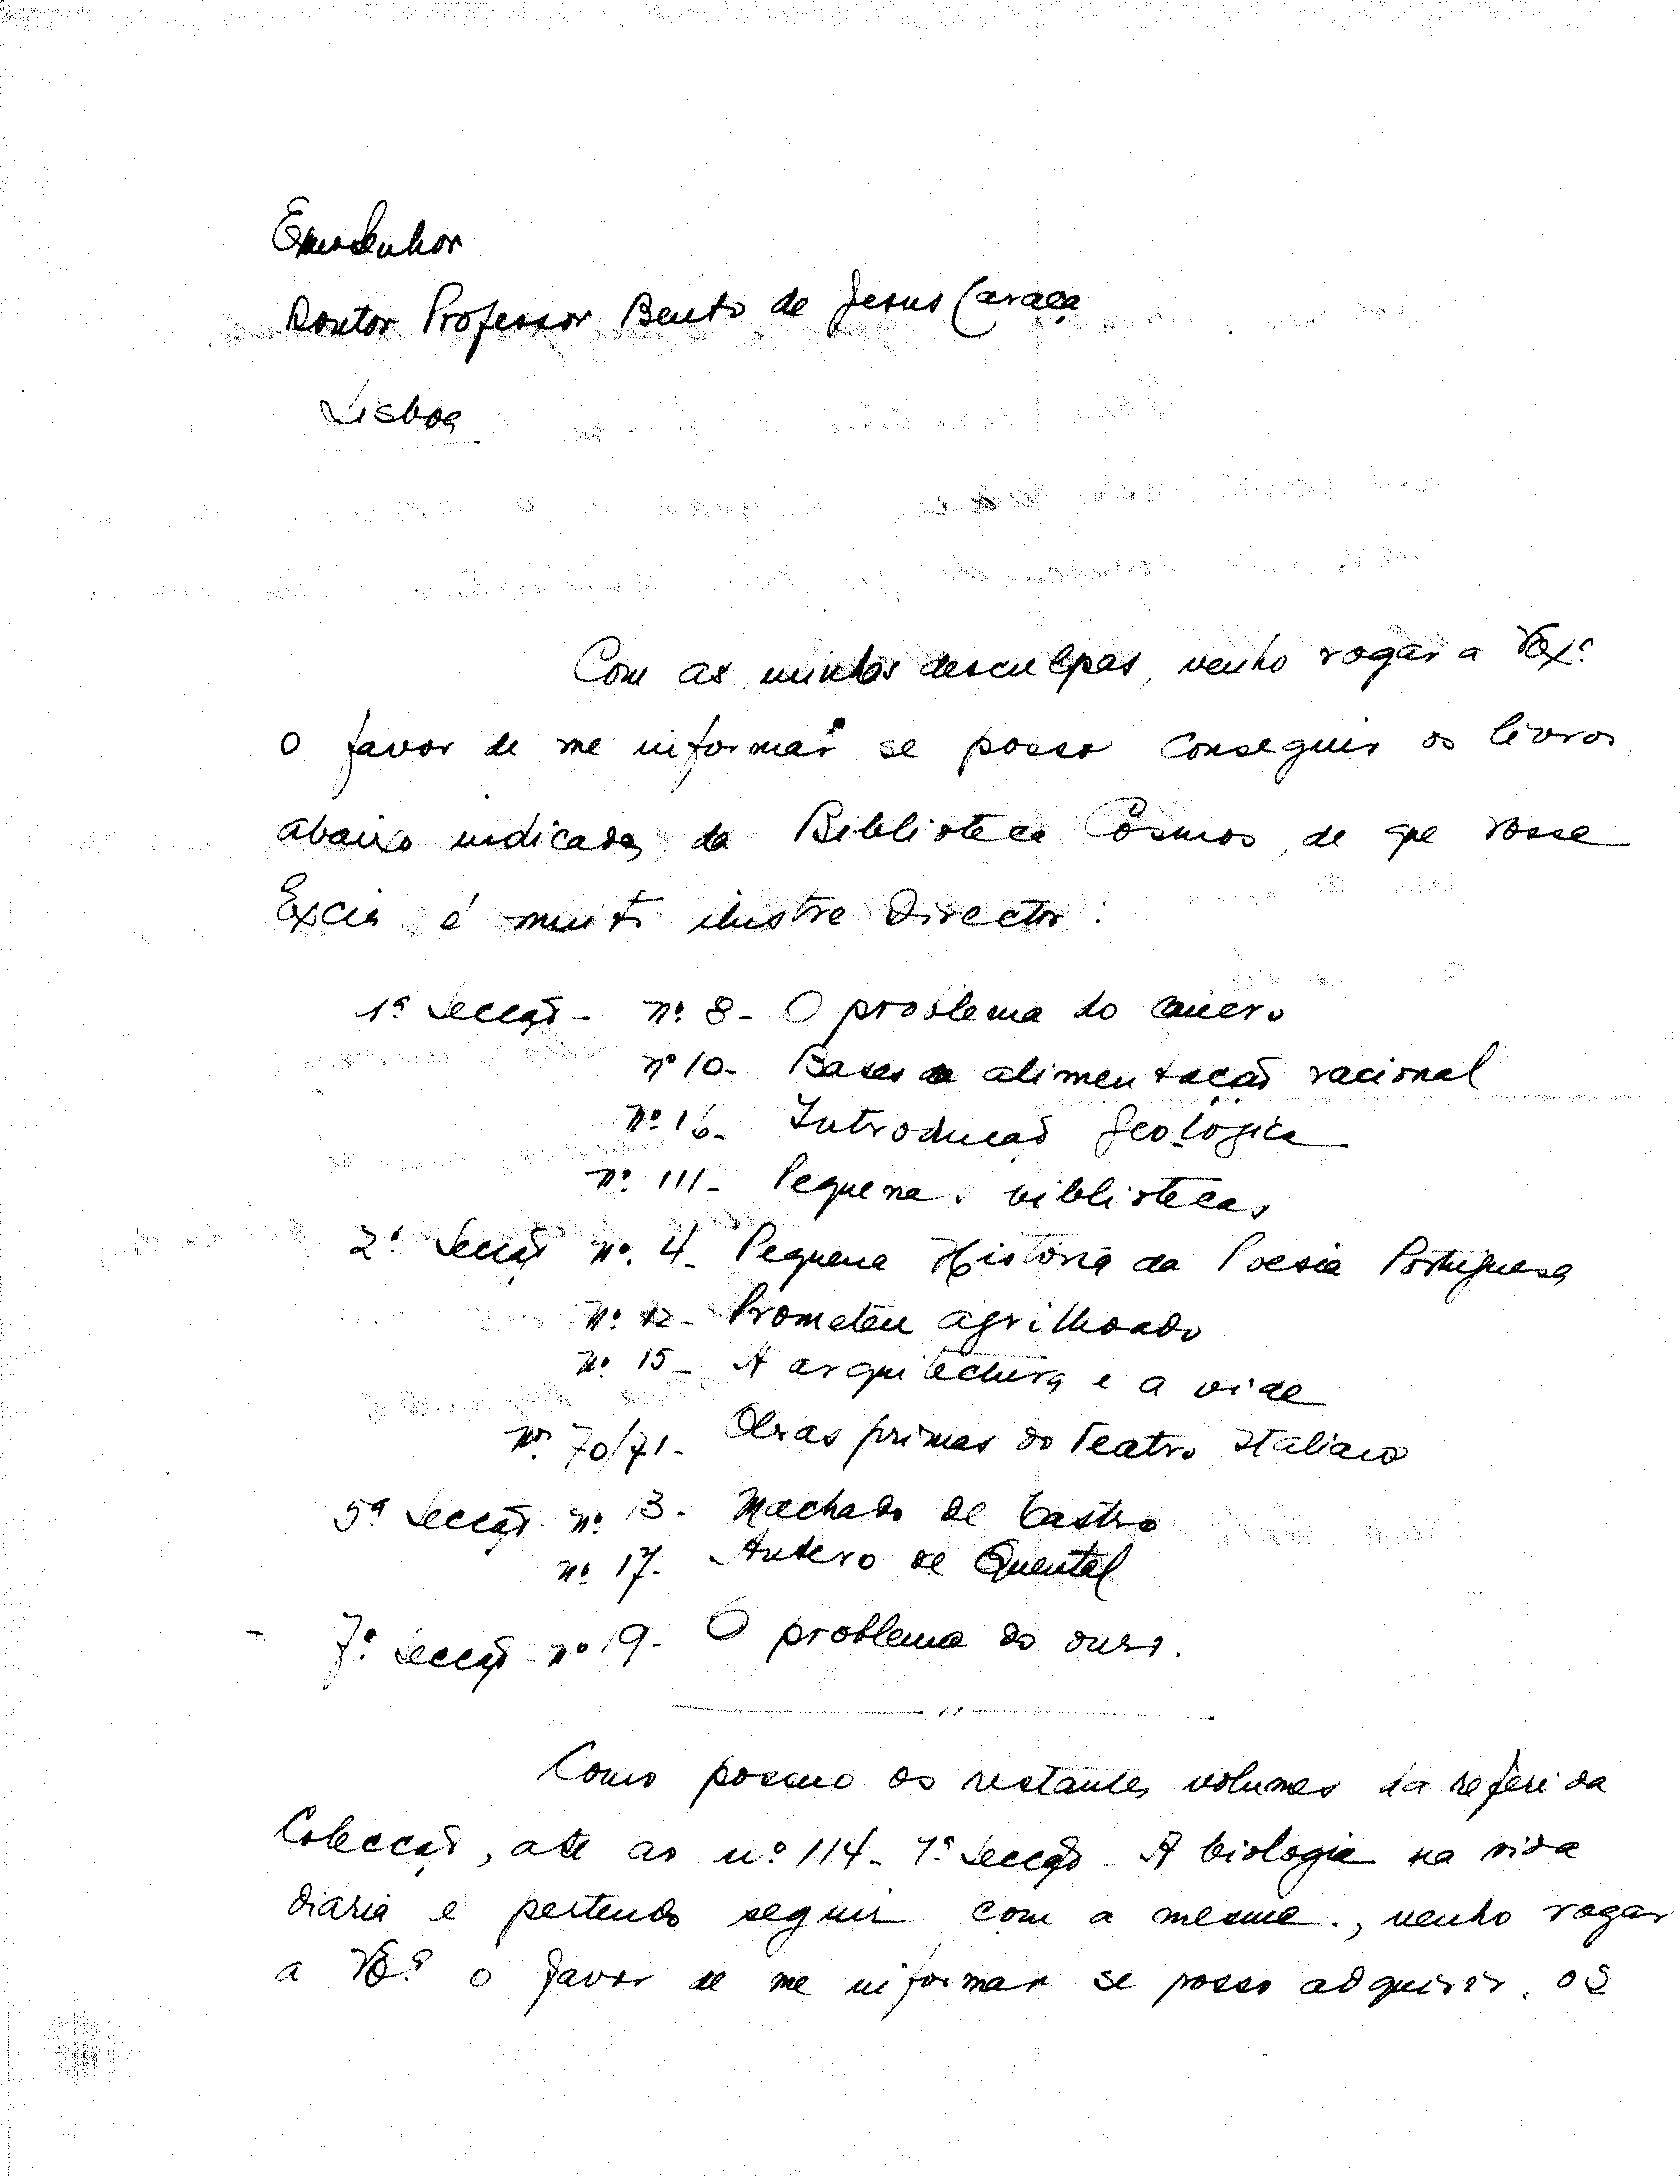 Exmo Senhor
Doutor Professor Bento de Jesus Caraça
Lisboa
Com as minhas desculpas, venho rogar a VEx.ª
o favor de me informar se posso conseguir os livros
abaixo indicados da Biblioteca Cosmos, de que Vossa
Excia é muito ilustre Director:
1ª Secção - nº 8 - O problema do cancro
nº 10 - Bases da alimentação racional
nº 16 - Introdução geológica
nº 111 - Pequenas bibliotecas
2ª Secção nº 4 - Pequena História da Poesia Portuguesa
nº 12 - Prometeu agrilhoado
nº 15 - A arquitectura e a vida
nº 70/71 - Obras primas do Teatro Italiano
5ª Secção nº 13 - Machado de Castro
nº 17 - Antero de Quental
7ª Secção nº 19 - O problema do ouro.
Como possuo os restantes volumes da referida
Colecção, até ao nº 114 - 1ª Secção - A biologia na vida
diaria e pertendo seguir com a mesma, venho rogar
a VEª o favor de me informar se posso adquirir, os